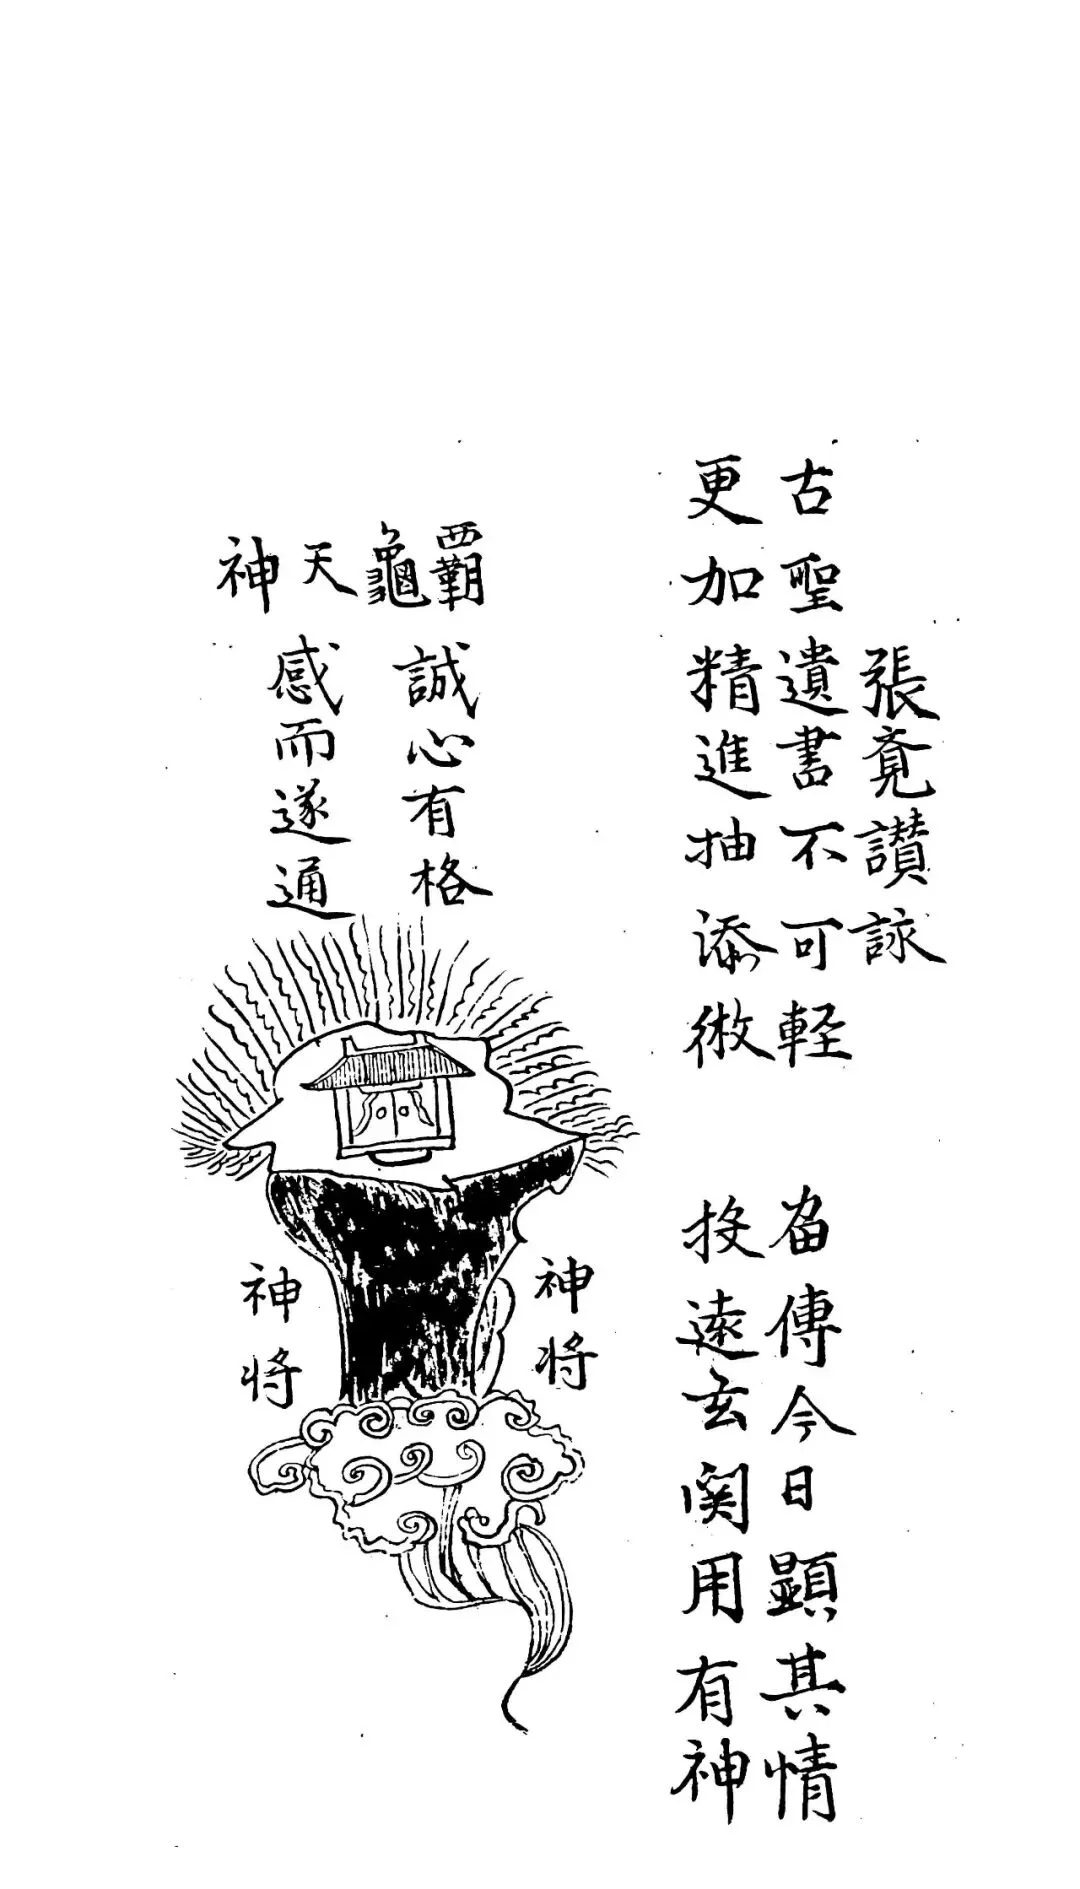 張竟讚詠
古聖遺書不可軽　留傳今日顯其情
更加精進抽添微　投遠玄関用有神
覇龜天神
誠心有格
感而遂通
神将
神将